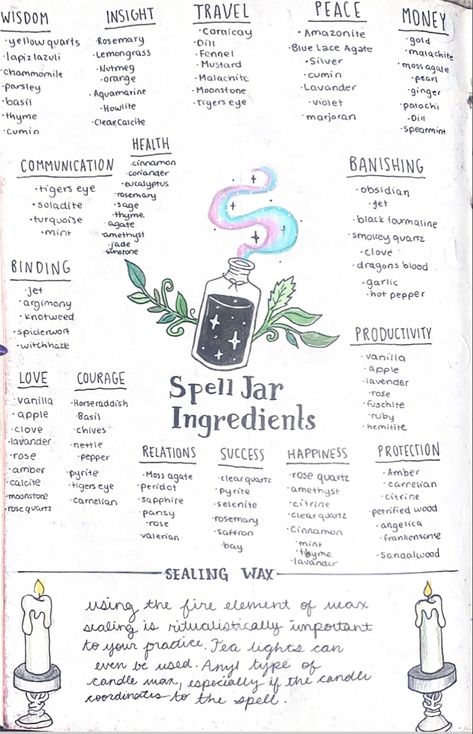 WISDOM
·yellow quarts
·lapizlazuli
·chammomile
·parsley
·basil
·thyme
·cumin
INSIGHT
·Rosemary
·Lemongrass
·Nutmeg
·orange
·Aquamarine
·Howlite
·ClearCalcite
TRAVEL
·Dill
·Fennel
·Mustard
·Malachite
·Moonstone
·tigers eye
PEACE
·Amazonite
·Blue Lace Agate
·Silver
·cumin
·Lavander
·violet
·marjoran
MONEY
·gold
·malachite
·moss agate
·pearl
·ginger
·patochi
·Dill
·spearmint
COMMUNICATION
·tigers eye
·soladite
·turquoise
·mint
HEALTH
·cinnamon
·coriander
·eucalyptus
·rosemary
·sage
·thyme
·agate
·amethyst
·jade
BANISHING
·obsidian
·jet
·black tourmaline
·smokey quartz
·clove
·dragons blood
·garlic
·hot pepper
BINDING
·jet
·argimony
·knotweed
·spiderwort
·witchhaze
PRODUCTIVITY
·vanilla
·apple
·lavender
·rose
·fuschite
·ruby
·hemitite
Spell Jar
Ingredients
LOVE
·vanilla
·apple
·clove
·lavander
·rose
·amber
·calcite
·moonstone
·rose quartz
COURAGE
·Horseraddish
·Basil
·chives
·nettle
·pepper
·pyrite
·tigers eye
·carnelian
RELATIONS
·Moss agate
·peridot
·sapphire
·pansy
·rose
·valerian
SUCCESS
·clear quartz
·pyrite
·selenite
·rosemary
·saffron
·bay
HAPPINESS
·rose quartz
·amethyst
·citrine
·clear quartz
·cinnamon
·mint
·thyme
·lavander
PROTECTION
·Amber
·carnelian
·citrine
·petrified wood
·angelica
·frankensense
·sandalwood
SEALING WAX
using the fire element of wax
sealing is ritualistically important
to your practice. Tea lights can
even be used. Anyl type of
candle wax, especially if the candle
coordinates to the spell.